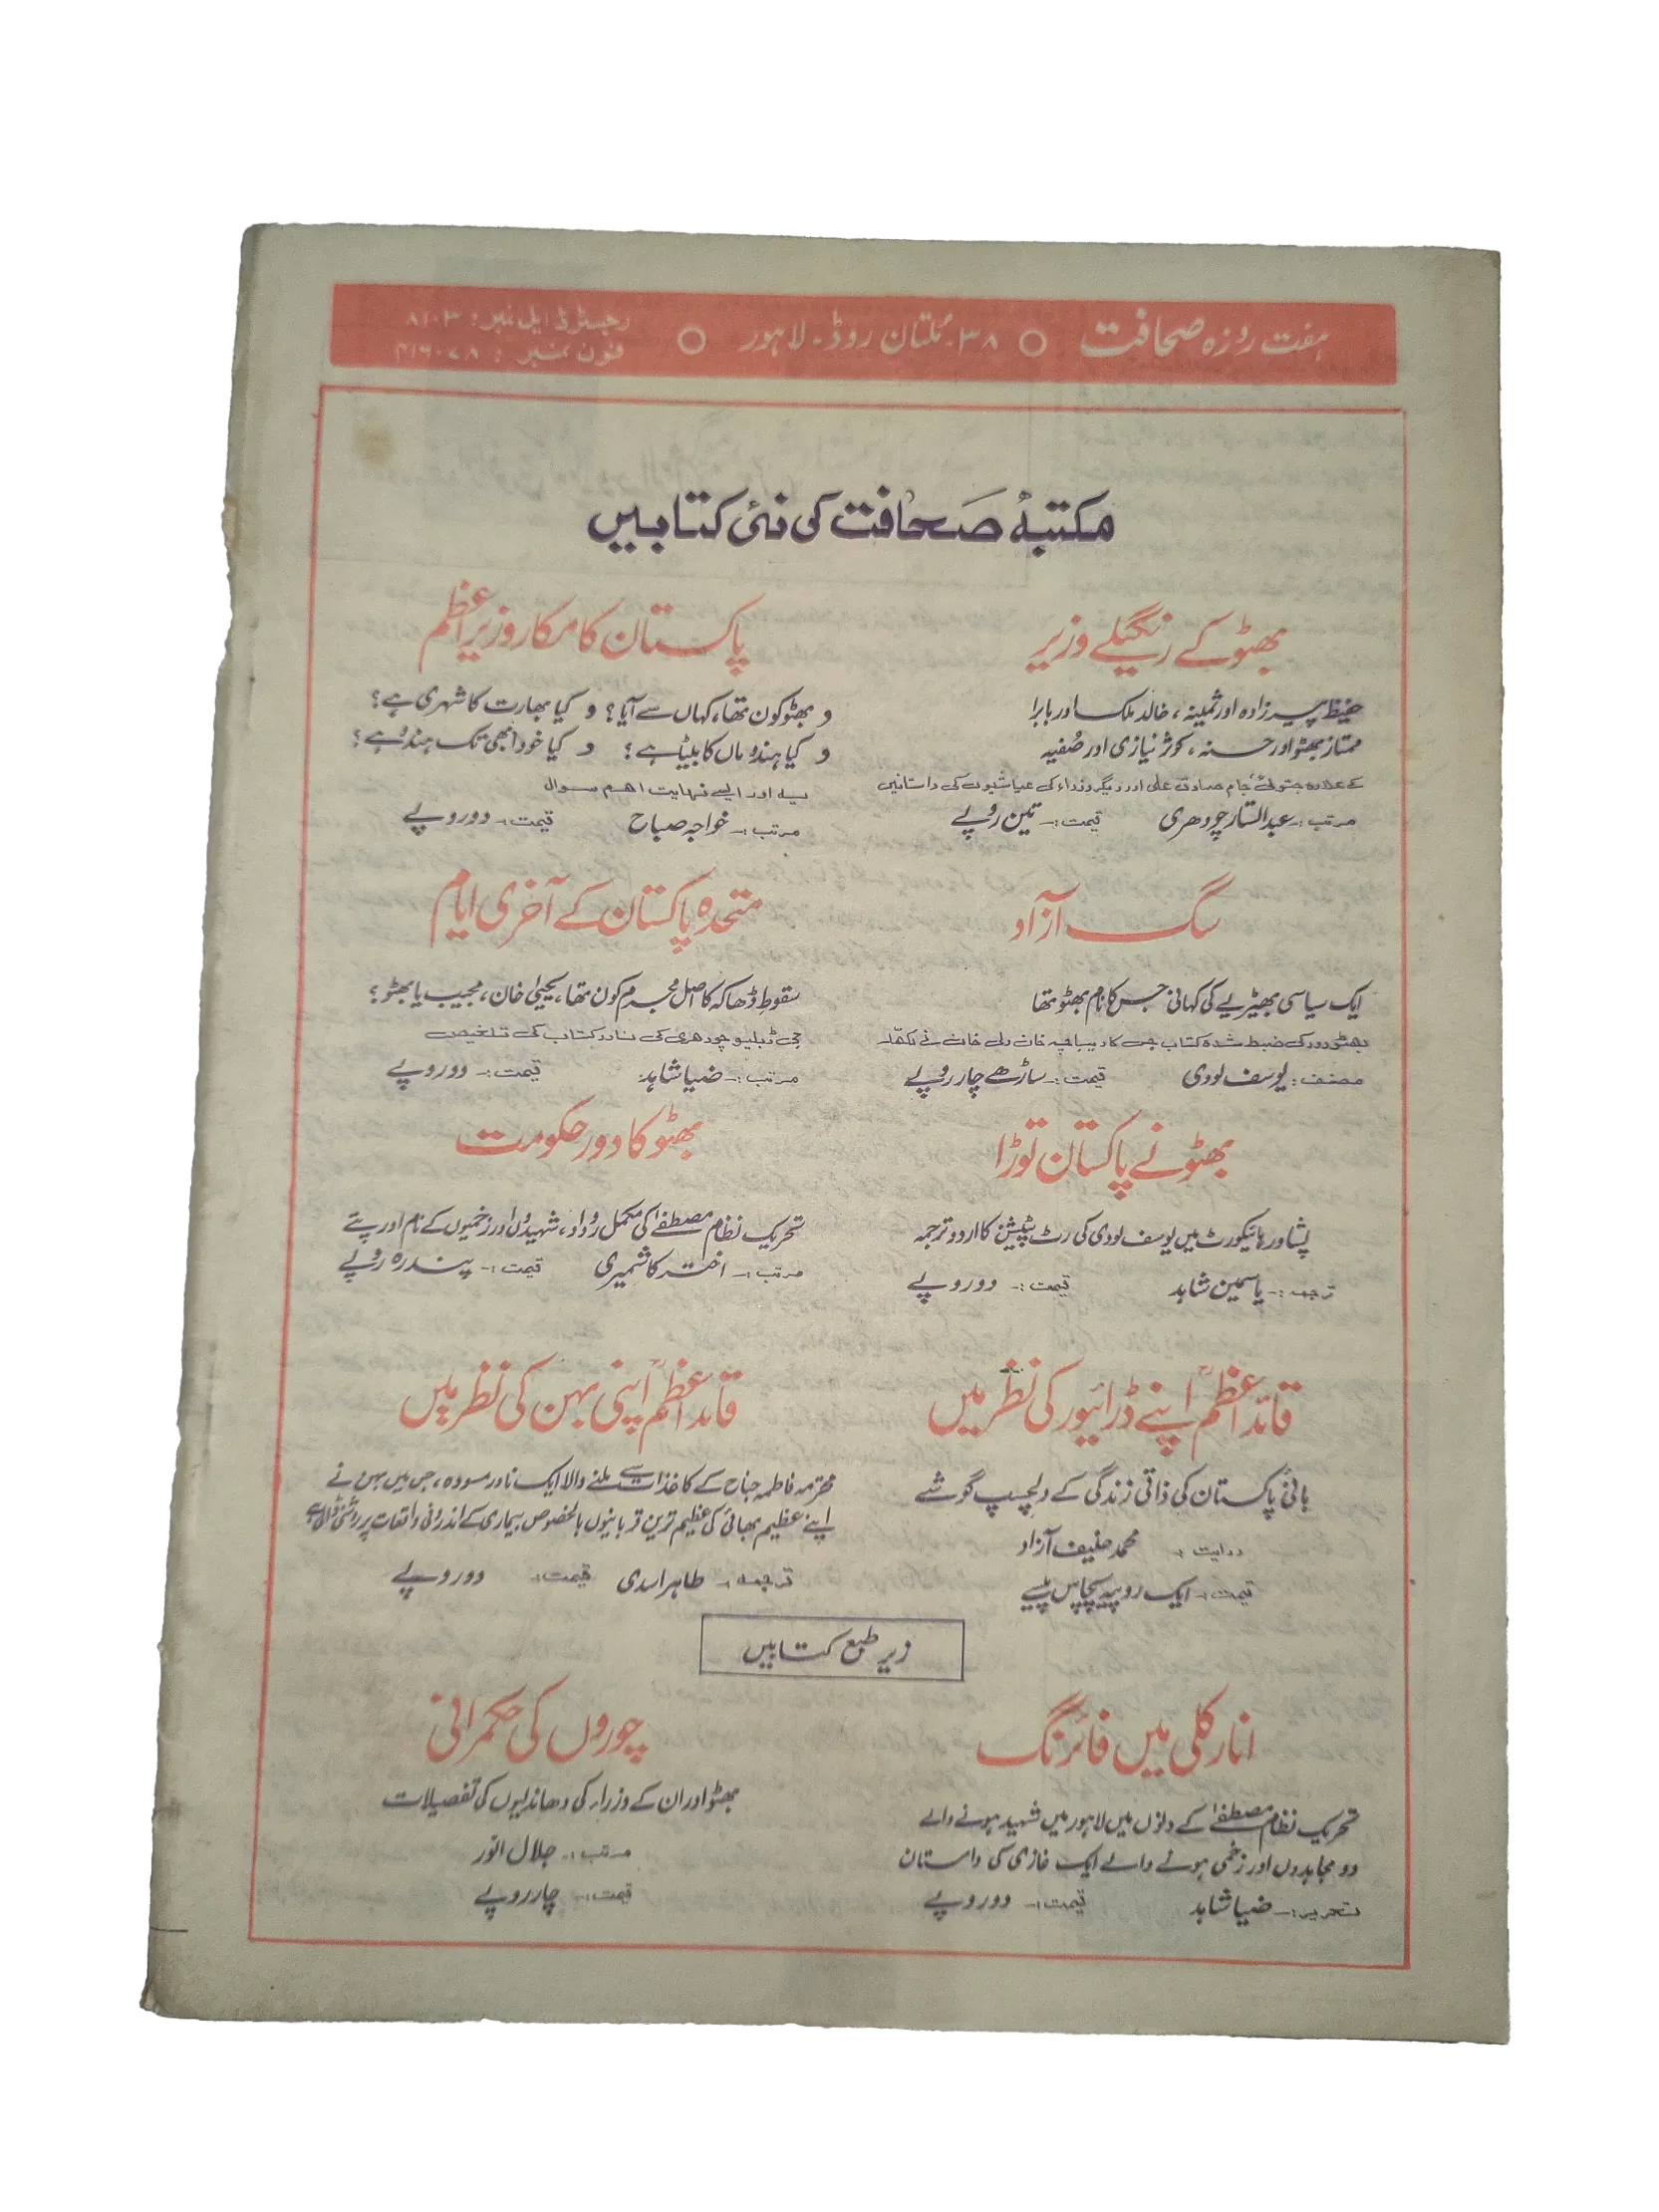 ہفت روزہ صحافت ○ ۳۸۔ ملتان روڈ۔ لاہور ○ رجسٹرڈ ایل نمبر: ۸۱۰۳
فون نمبر :
مکتبۂ صحافت کی نئی کتابیں
بھٹو کے رنگیلے وزیر
حفیظ پیرزادہ اور ثمینہ، خالد ملک اور بابرا
ممتاز بھٹو اور حسنہ، کوثر نیازی اور صفیہ
کے علاوہ جتوئی، جام صادق علی اور دیگر وزراء کی عیاشیوں کی داستانیں
مرتب:۔ عبدالستار چودھری قیمت:۔ تین روپے
پاکستان کا مکار وزیراعظم
و بھٹو کون تھا، کہاں سے آیا؟ و کیا بھارت کا شہری ہے؟
و کیا ہندو ماں کا بیٹا ہے؟ و کیا خود ابھی تک ہندو ہے؟
یہ اور ایسے نہایت اہم سوال
مرتب:۔ خواجہ صباح قیمت:۔ دو روپے
سگ آزاد
ایک سیاسی بھیڑیے کی کہانی جس کا نام بھٹو تھا
بھٹو دور کی ضبط شدہ کتاب جس کا دیباچہ خان ولی خان نے لکھا۔
مصنف: یوسف لودی قیمت:۔ ساڑھے چار روپے
متحدہ پاکستان کے آخری ایام
سقوطِ ڈھاکہ کا اصل مجرم کون تھا، یحییٰ خان، مجیب یا بھٹو؟
جی ڈبلیو چودھری کی نادر کتاب کی تلخیص
مرتب:۔ ضیا شاہد قیمت:۔ دو روپے
بھٹو نے پاکستان توڑا
پشاور ہائیکورٹ میں یوسف لودی کی رٹ پٹیشن کا اردو ترجمہ
ترجمہ:۔ یاسمین شاہد قیمت:۔ دو روپے
بھٹو کا دور حکومت
تحریک نظام مصطفےٰ کی مکمل روداد، شہیدوں اور زخمیوں کے نام اور پتے
مرتب:۔ اختر کاشمیری قیمت:۔ پندرہ روپے
قائداعظمؒ اپنے ڈرائیور کی نظر میں
بانیٔ پاکستان کی ذاتی زندگی کے دلچسپ گوشے
روایت :۔ محمد حنیف آزاد
قیمت:۔ ایک روپیہ پچاس پیسے
قائداعظمؒ اپنی بہن کی نظر میں
محترمہ فاطمہ جناح کے کاغذات سے ملنے والا ایک نادر مسودہ، جس میں بہن نے
اپنے عظیم بھائی کی عظیم ترین قربانیوں بالخصوص بیماری کے اندرونی واقعات پر روشنی ڈالی ہے
ترجمہ:۔ طاہر اسدی قیمت:۔ دو روپے
زیر طبع کتابیں
انارکلی میں فائرنگ
تحریک نظام مصطفےٰ کے دنوں میں لاہور میں شہید ہونے والے
دو مجاہدوں اور زخمی ہونے والے ایک غازی کی داستان
تحریر:۔ ضیا شاہد قیمت:۔ دو روپے
چوروں کی حکمرانی
بھٹو اور ان کے وزراء کی دھاندلیوں کی تفصیلات
مرتب:۔ جلال انور
قیمت:۔ چار روپے